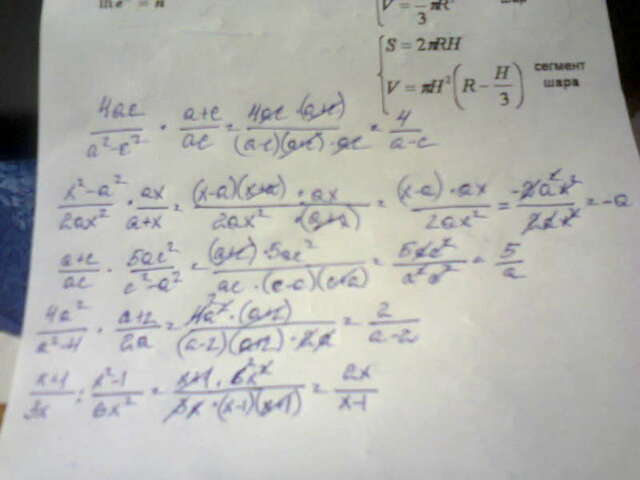 ln e = n
V = 1/3 πR³ шар
S = 2πRH
V = πH²(R − H/3) сегмент шара
4ac/(a²−c²) · (a+c)/ac = 4ac·(a+c)/((a−c)(a+c)·ac) = 4/(a−c)
(x²−a²)/2ax² · ax/(a+x) = (x−a)(x+a)·ax/(2ax²·(a+x)) = (x−a)·ax/2ax² = −2a²x²/2ax² = −a
(a+c)/ac · 5ac²/(c²−a²) = (a+c)·5ac²/(ac·(c−a)(c+a)) = 5ac²/a²c² = 5/a
4a²/(a²−4) · (a+2)/2a = 4a²·(a+2)/((a−2)(a+2)·2a) = 2/(a−2)
(x+1)/3x : (x²−1)/6x² = x+1·6x²/(3x·(x−1)(x+1)) = 2x/(x−1)